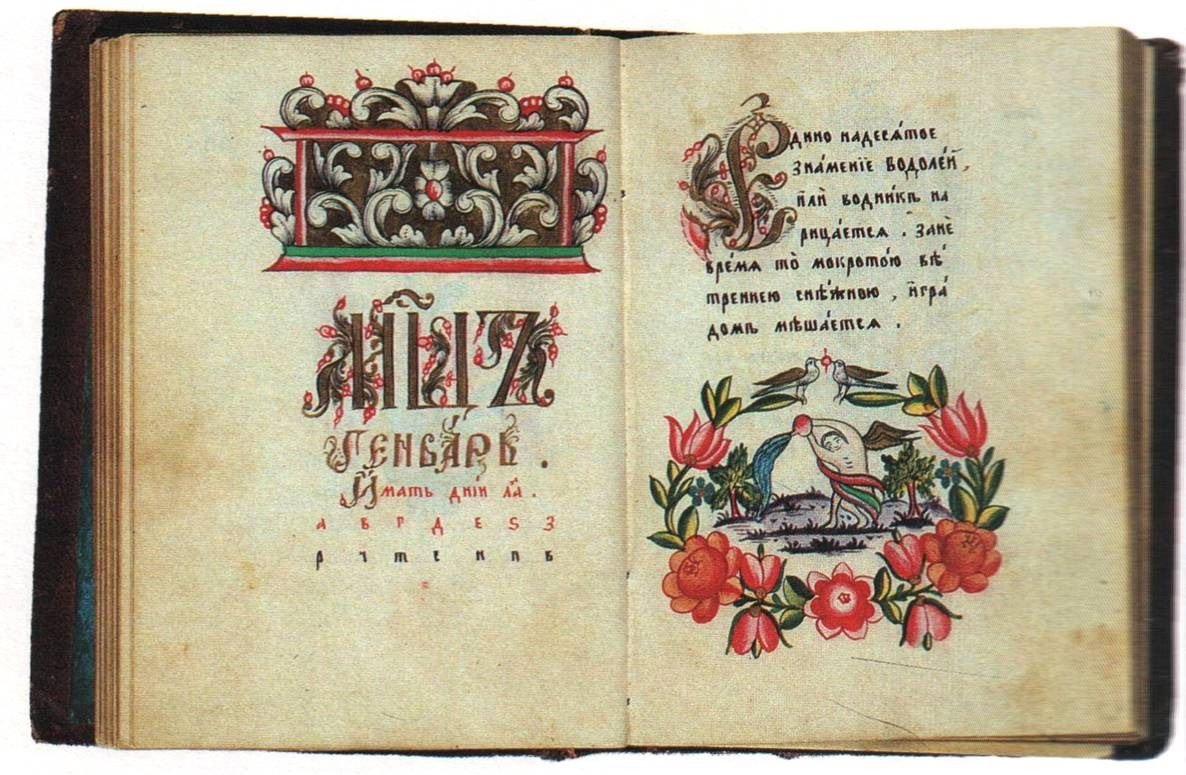 Мц҃ъ
Генва́рь.
И҆́мать дні́и ла҃.
а в г д е ѕ з
Е҆дино надеся́тое
зна́меніе водоле́й,
и҆лѝ водни́къ на
рица́ется. занѐ
вре́мя то̀ мокротою вѣ́
треннею снѣ́жною, и҆ гра
домъ мѣша́ется.